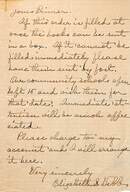 If this order is filled at
once the books can be sent
in a box. If it cannot be
filled immediately, please
have them sent by post.
Our community schools open
Sept 15 and with them for
that date. Immediate at-
tention will be much appre-
ciated.
Please charge to my
account and I will arrange
it here.
Very sincerely
Elizabeth